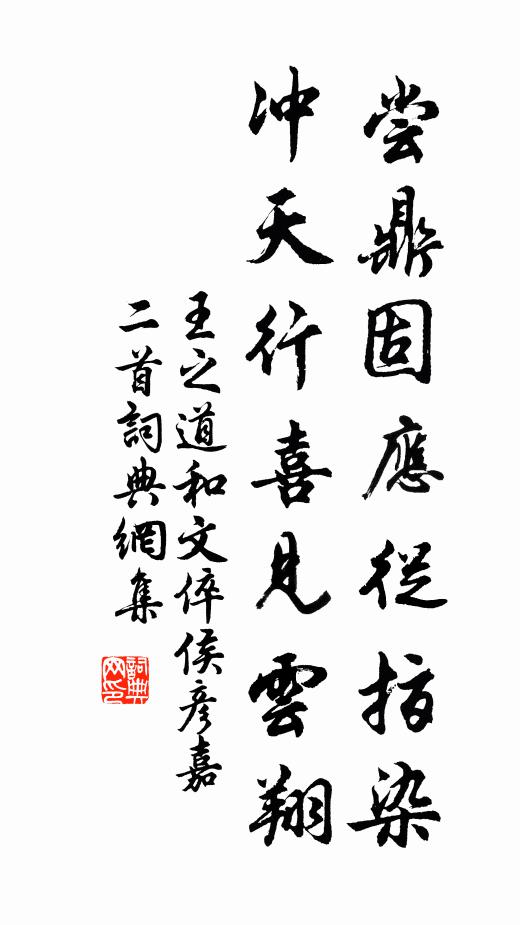 尝鼎固應從指染
冲天行喜見雲翔
王之道和文倅侯彦嘉
二首詞典網集
詞典网印